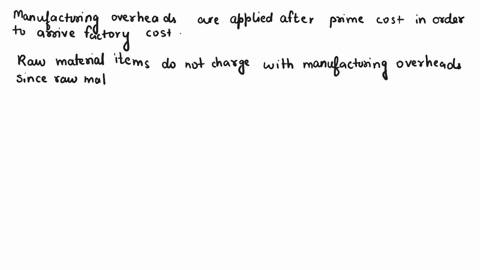 Manufacturing overheads are applied after prime cost in order
to arrive factory cost.
Raw material items do not charge with manufacturing overheads
since raw mal